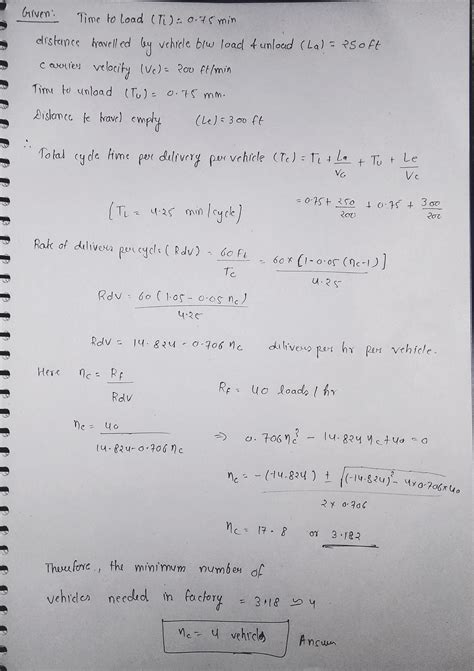 Given: Time to Load (TL) = 0.75 min
distance travelled by vehicle b/w load & unload (La) = 250 ft
carrier velocity (Vc) = 200 ft/min
Time to unload (Tu) = 0.75 min.
Distance to travel empty (Le) = 300 ft
∴ Total cycle time per delivery per vehicle (Tc) = TL + La/Vc + Tu + Le/Vc
= 0.75 + 250/200 + 0.75 + 300/200
[TL = 4.25 min/cycle]
Rate of delivers per cycle (Rdv) = 60 Ft/Tc = 60 × [1-0.05 (nc-1)]/4.25
Rdv = 60 (1.05 - 0.05 nc)/4.25
Rdv = 14.824 - 0.706 nc delivers per hr per vehicle.
Here nc = Rf/Rdv Rf = 40 loads / hr
nc = 40/14.824-0.706 nc ⇒ 0.706nc² - 14.824 nc + 40 = 0
nc = -(-14.824) ± √(-14.824)² - 4×0.706×40/2 × 0.706
nc = 17.8 or 3.182
Therefore, the minimum number of
vehicles needed in factory = 3.18 ≃ 4
nc = 4 vehicles Answer